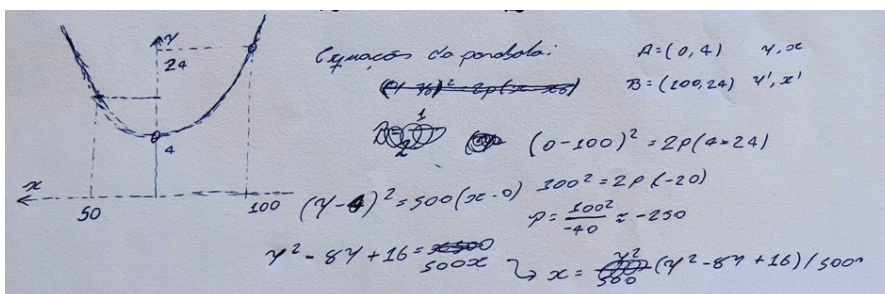 y
24
4
x
50
100
Equação da parabola:
A=(0,4) y,x
B=(100,24) y',x'
(0-100)² = 2p(4-24)
100² = 2p(-20)
p = 100²/-40 ≈ -250
(y-4)² = 500(x-0)
y² - 8y + 16 = 500x
x = (y² - 8y + 16)/500